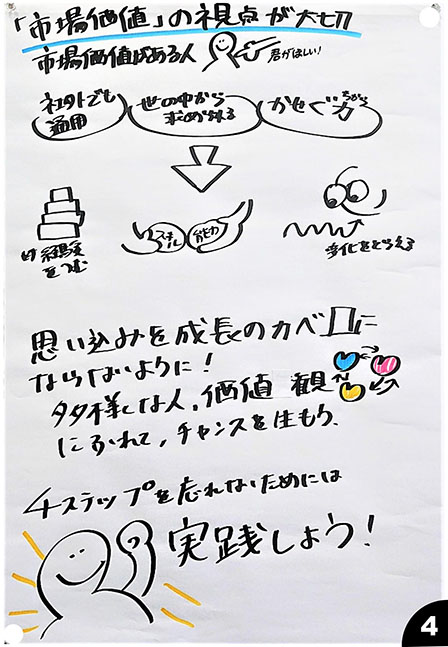 「市場価値」の視点が大切
市場価値がある人
君がほしい!
社外でも
通用
世の中から
求められる
かせぐ力
ちから
経験
をつむ
スキル
能力
変化をとらえる
思い込みを成長のカベに
ならないように!
多様な人、価値観
にふれて、チャンスを生もう。
4ステップを忘れないためには
実践しよう!
4